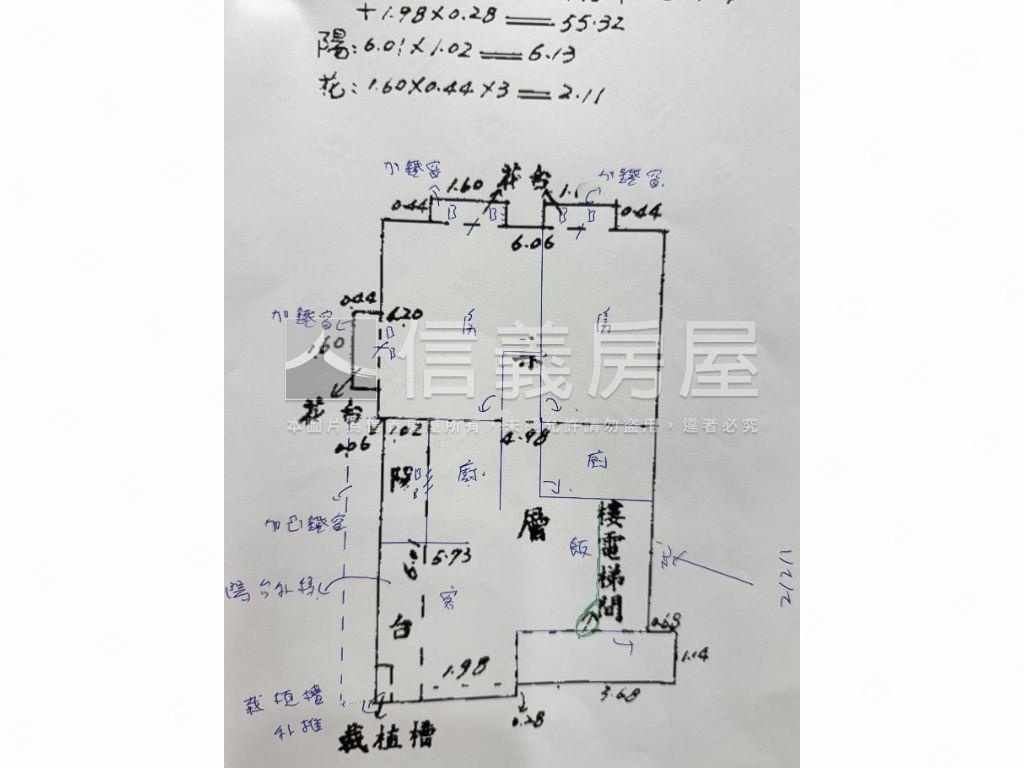 +1.98×0.28 = 55.32
陽:6.01×1.02 = 6.13
花:1.60×0.44×3 = 2.11
加鋁窗
1.60
花台
加鋁窗
0.44
B B
B B
0.44
6.06
0.44
加鋁窗
4.20
B
B
房
房
1.60
信義房屋
花台
本圖片為信義房屋所有,未經允許請勿盜用,違者必究
1.02
4.98
0.06
陽
B
B
廚
廁
層
樓電梯間
加巴鋁窗
飯
6.01
5.73
陽台外緣
客
台
2/2/1
0.68
1.14
1.98
3.68
栽植槽
外推
0.28
栽植槽